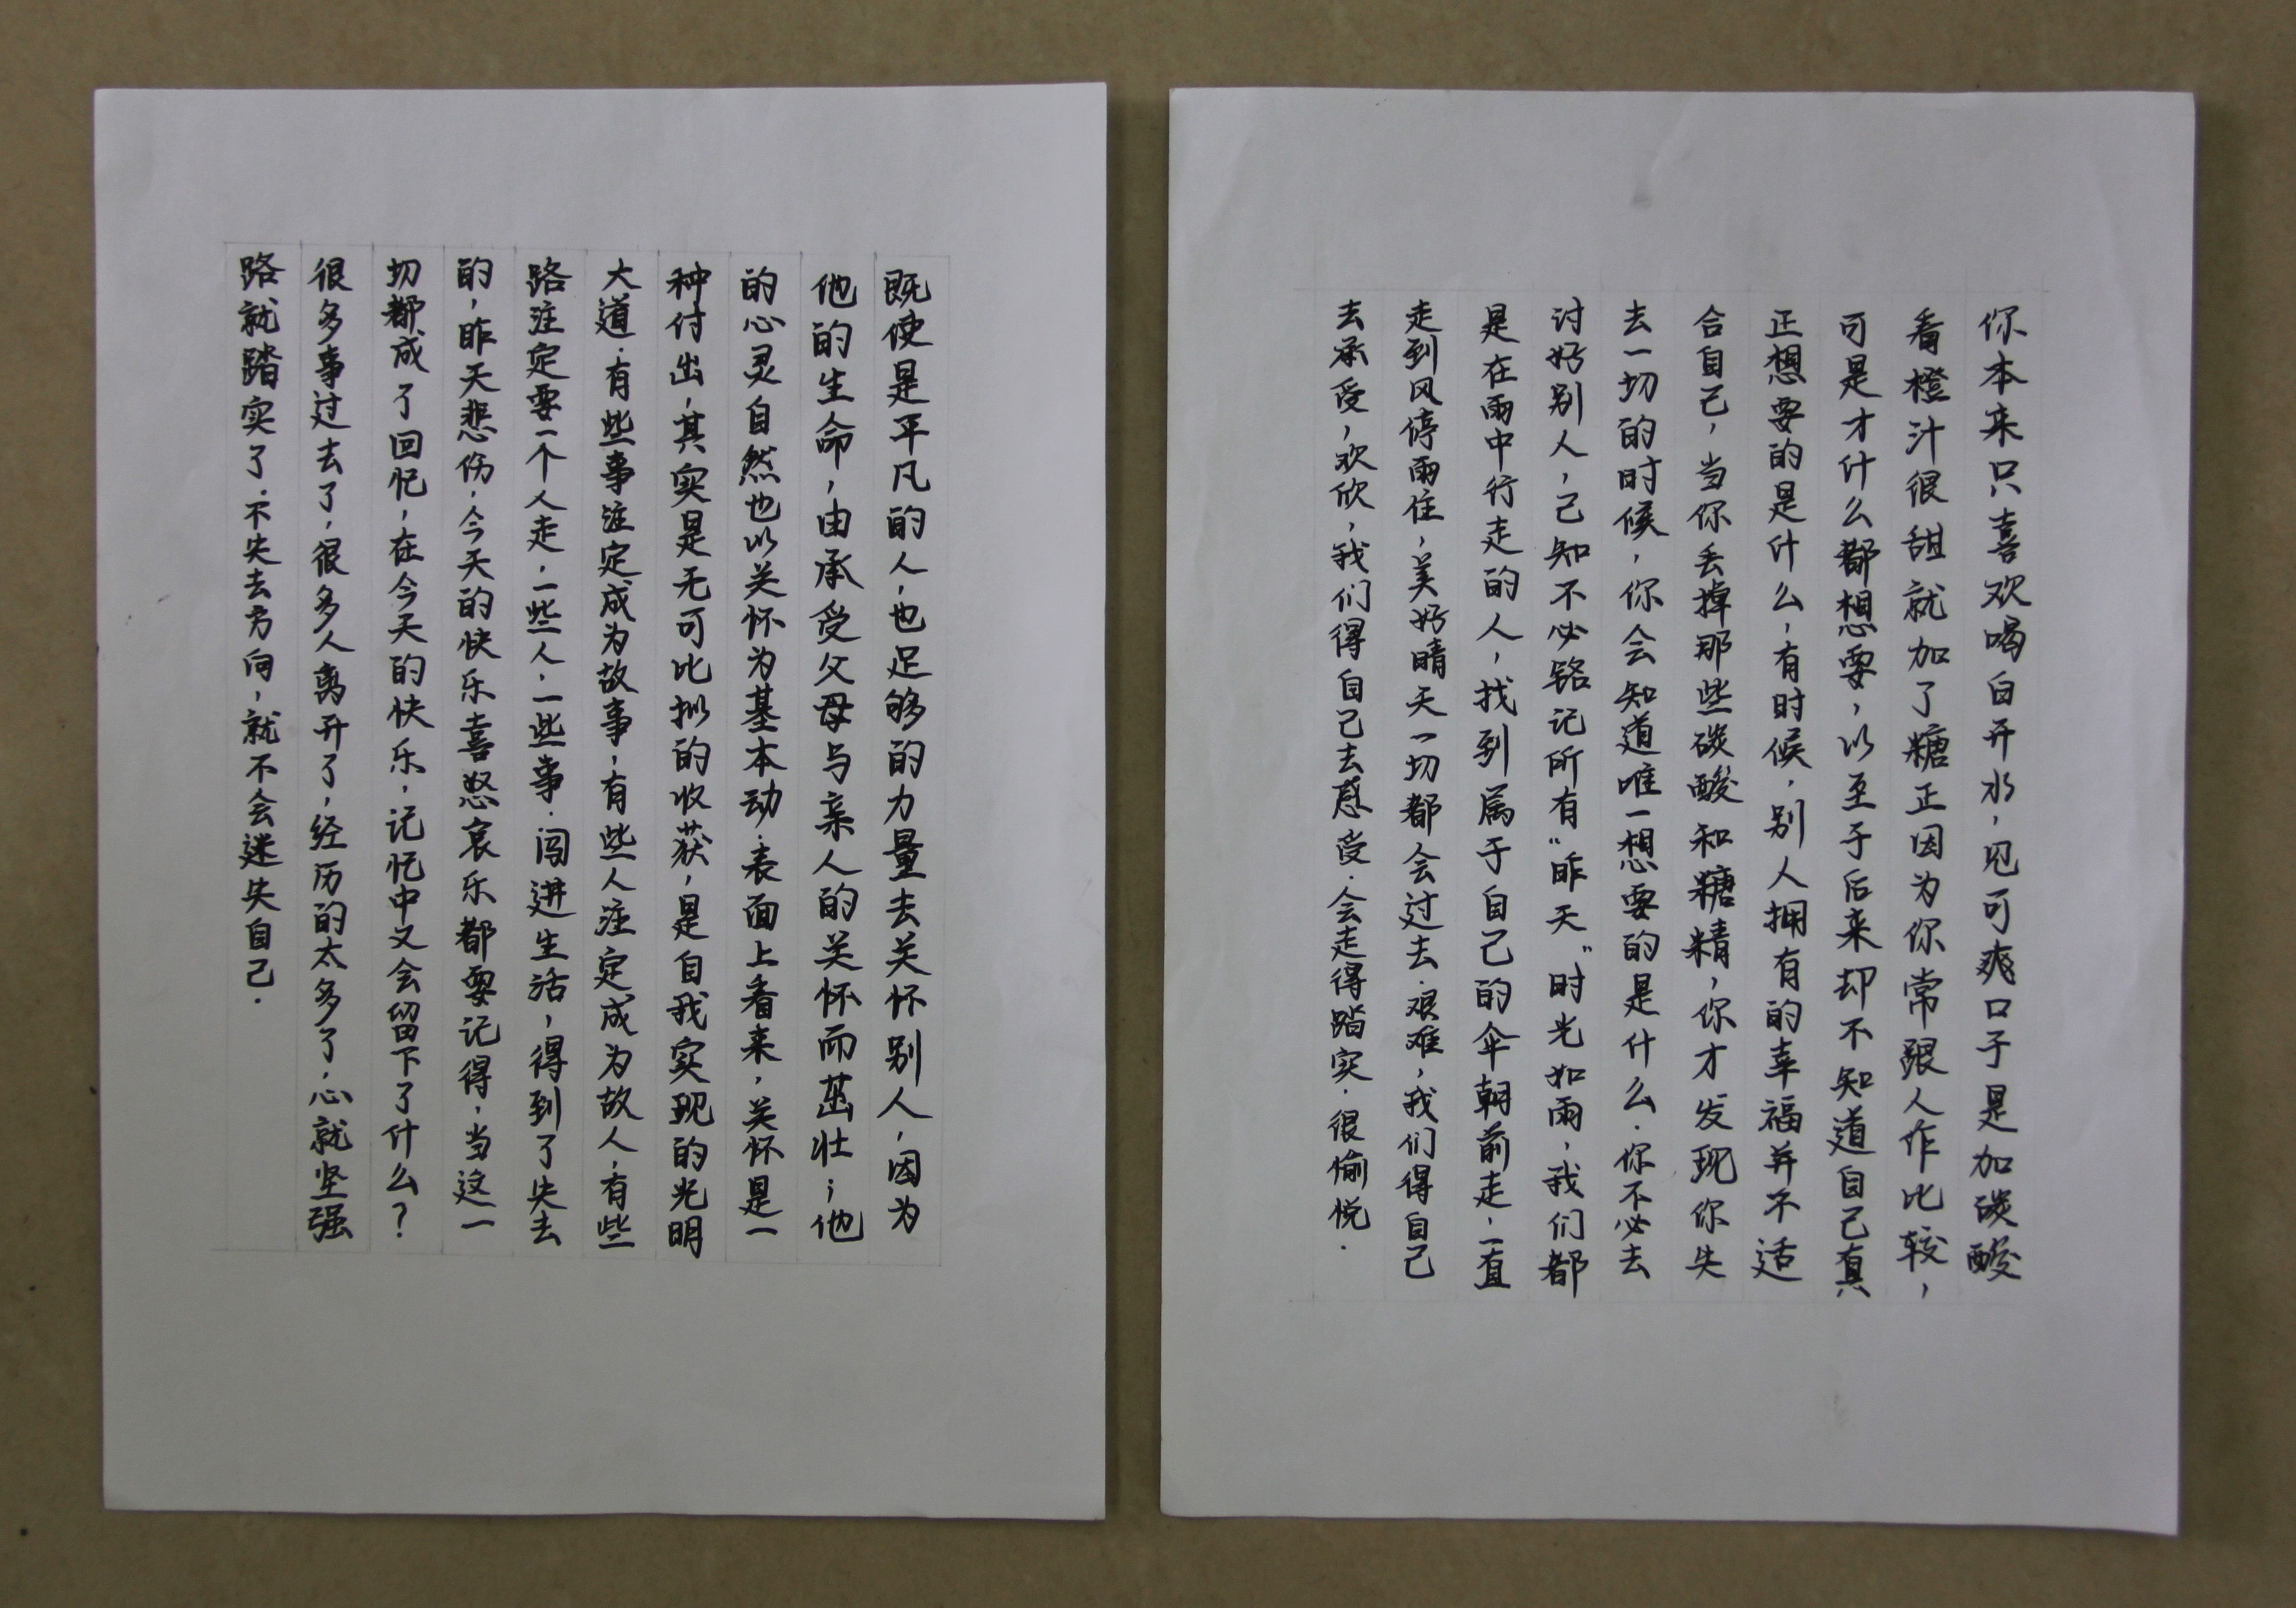 你本来只喜欢喝白开水，见可爽口于是加碳酸
看橙汁很甜就加了糖正因为你常跟人作比较，
可是才什么都想要，以至于后来却不知道自己真
正想要的是什么，有时候，别人拥有的幸福并不适
合自己，当你丢掉那些碳酸和糖精，你才发现你失
去一切的时候，你会知道唯一想要的是什么．你不必去
讨好别人，己知不必铭记所有“昨天”时光如雨，我们都
是在雨中行走的人，找到属于自己的伞朝前走，一直
走到风停雨住，美好晴天一切都会过去．艰难，我们得自己
去承受，欢欣，我们得自己去感受．会走得踏实．很愉悦．
既使是平凡的人，也足够的力量去关怀别人，因为
他的生命，由承受父母与亲人的关怀而茁壮；他
的心灵自然也以关怀为基本动．表面上看来，关怀是一
种付出，其实是无可比拟的收获，是自我实现的光明
大道．有些事注定成为故事，有些人注定成为故人，有些
路注定要一个人走，一些人，一些事．闯进生活，得到了失去
的，昨天悲伤，今天的快乐喜怒哀乐都要记得，当这一
切都成了回忆，在今天的快乐，记忆中又会留下了什么？
很多事过去了，很多人离开了，经历的太多了，心就坚强
路就踏实了．不失去方向，就不会迷失自己．